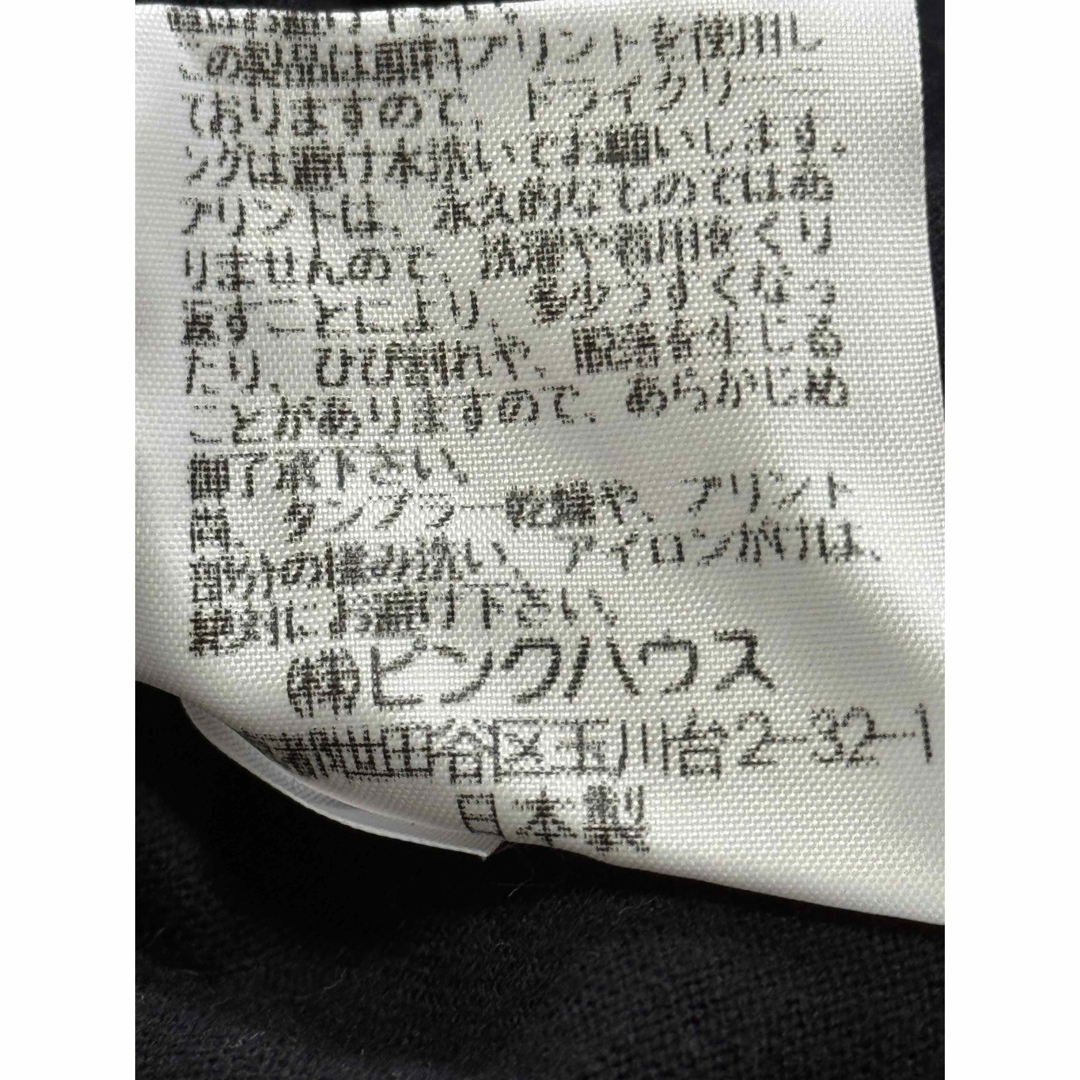 この製品は顔料プリントを使用し
ておりますので、ドライクリーニ
ングは避け水洗いでお願いします。
プリントは、永久的なものではあ
りませんので、洗濯や着用をくり
返すことにより、多少うすくなっ
たり、ひび割れや、脱落を生じる
ことがありますので、あらかじめ
御了承下さい。
尚、タンブラー乾燥や、プリント
部分の揉み洗い、アイロンがけは、
絶対にお避け下さい。
㈱ピンクハウス
世田谷区玉川台2-32-1
日本製